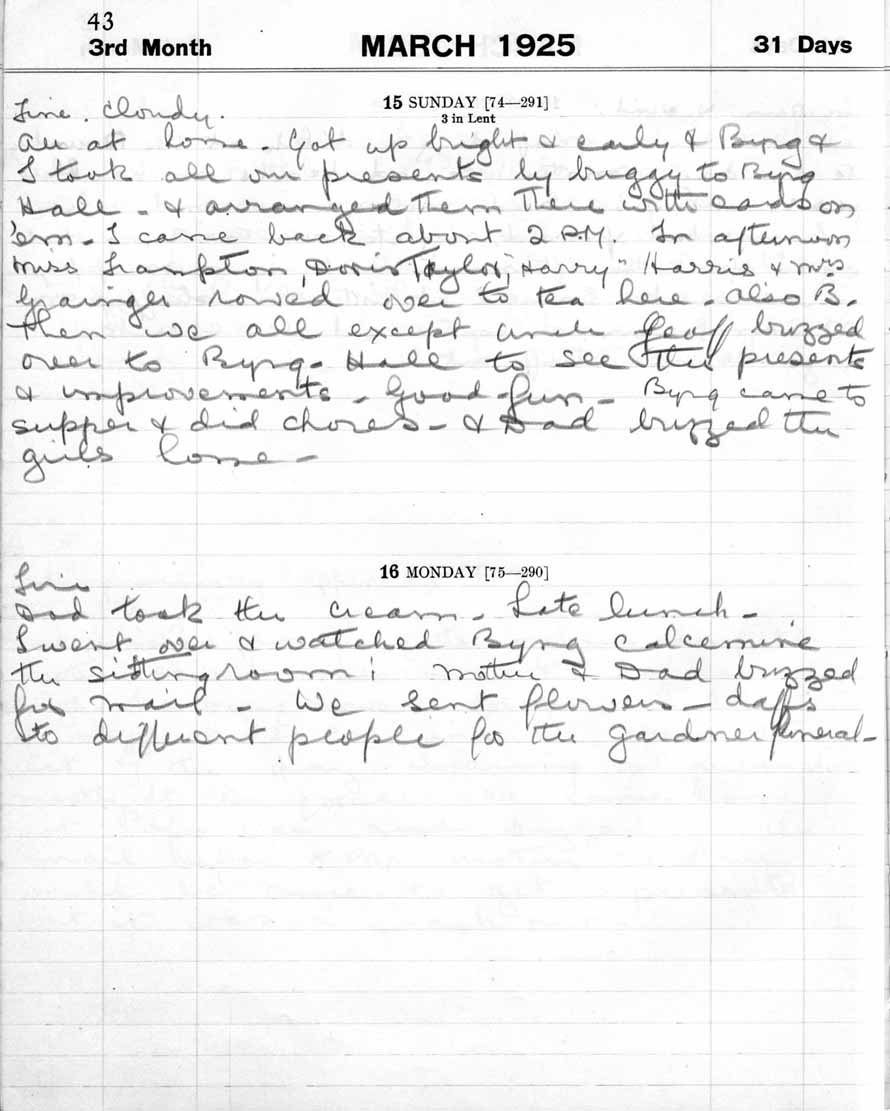 43
3rd Month MARCH 1925 31 Days
15 SUNDAY [74—291]
3 in Lent
Fine. Cloudy.
All at home. Got up bright & early & Byng &
I took all our presents by buggy to Byng
Hall - & arranged them there with cards on
'em - I came back about 2 P.M. In afternoon
Miss Frampton, Doris Taylor, "Harry" Harris & Mrs
Grainger rowed over to tea here. Also B.
Then we all except Uncle Geoff buzzed
over to Byng-Hall to see the presents
& improvements - Good fun - Byng came to
supper & did chores - & Dad buzzed the
girls home -
16 MONDAY [75—290]
Fine
Dad took the cream - Late lunch -
I went over & watched Byng calcemine
the sitting room! Mother & Dad buzzed
for mail - We sent flowers - daffs
to different people for the Gardner funeral -